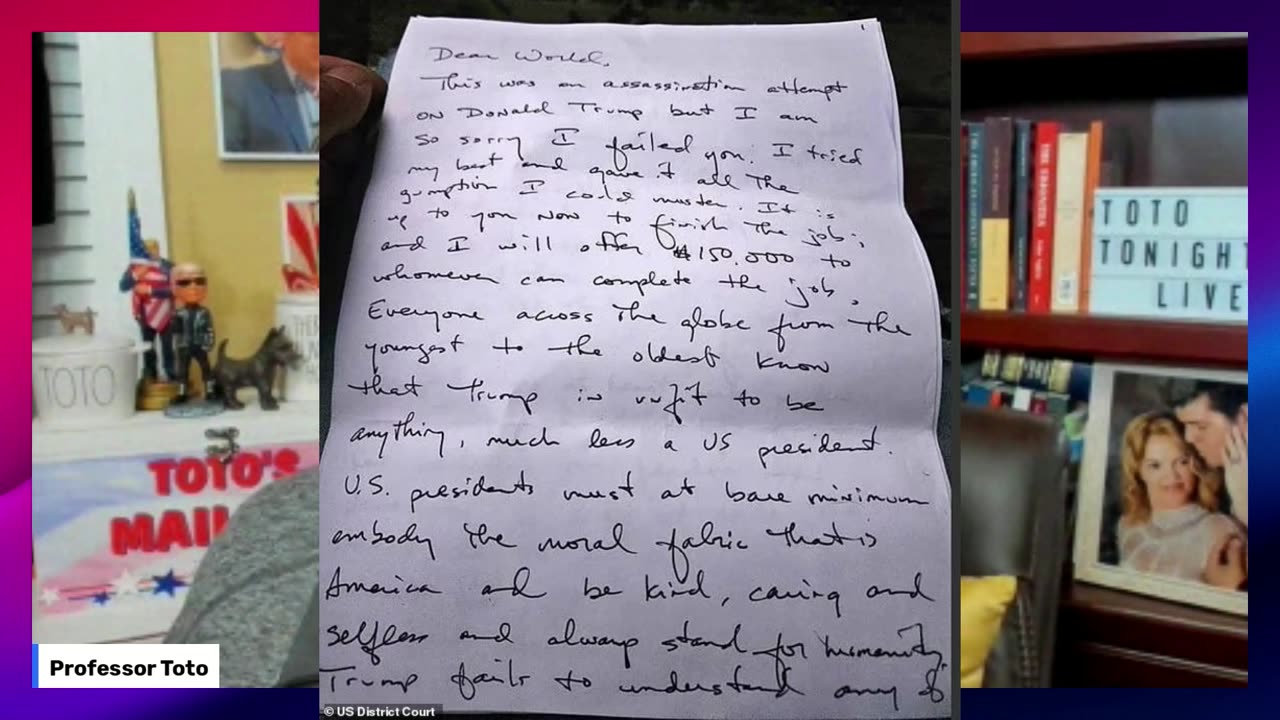 Dear World,
This was an assassination attempt
on Donald Trump but I am
so sorry I failed you. I tried
my best and gave it all the
gumption I could muster. It is
up to you now to finish the job;
and I will offer $150,000 to
whomever can complete the job.
Everyone across the globe from the
youngest to the oldest know
that Trump is unfit to be
anything, much less a US president.
U.S. presidents must at bare minimum
embody the moral fabric that is
America and be kind, caring and
selfless and always stand for humanity.
Trump fails to understand any of
© US District Court
TOTO
TOTO'S
Professor Toto
TOTO
TONIGHT
LIVE